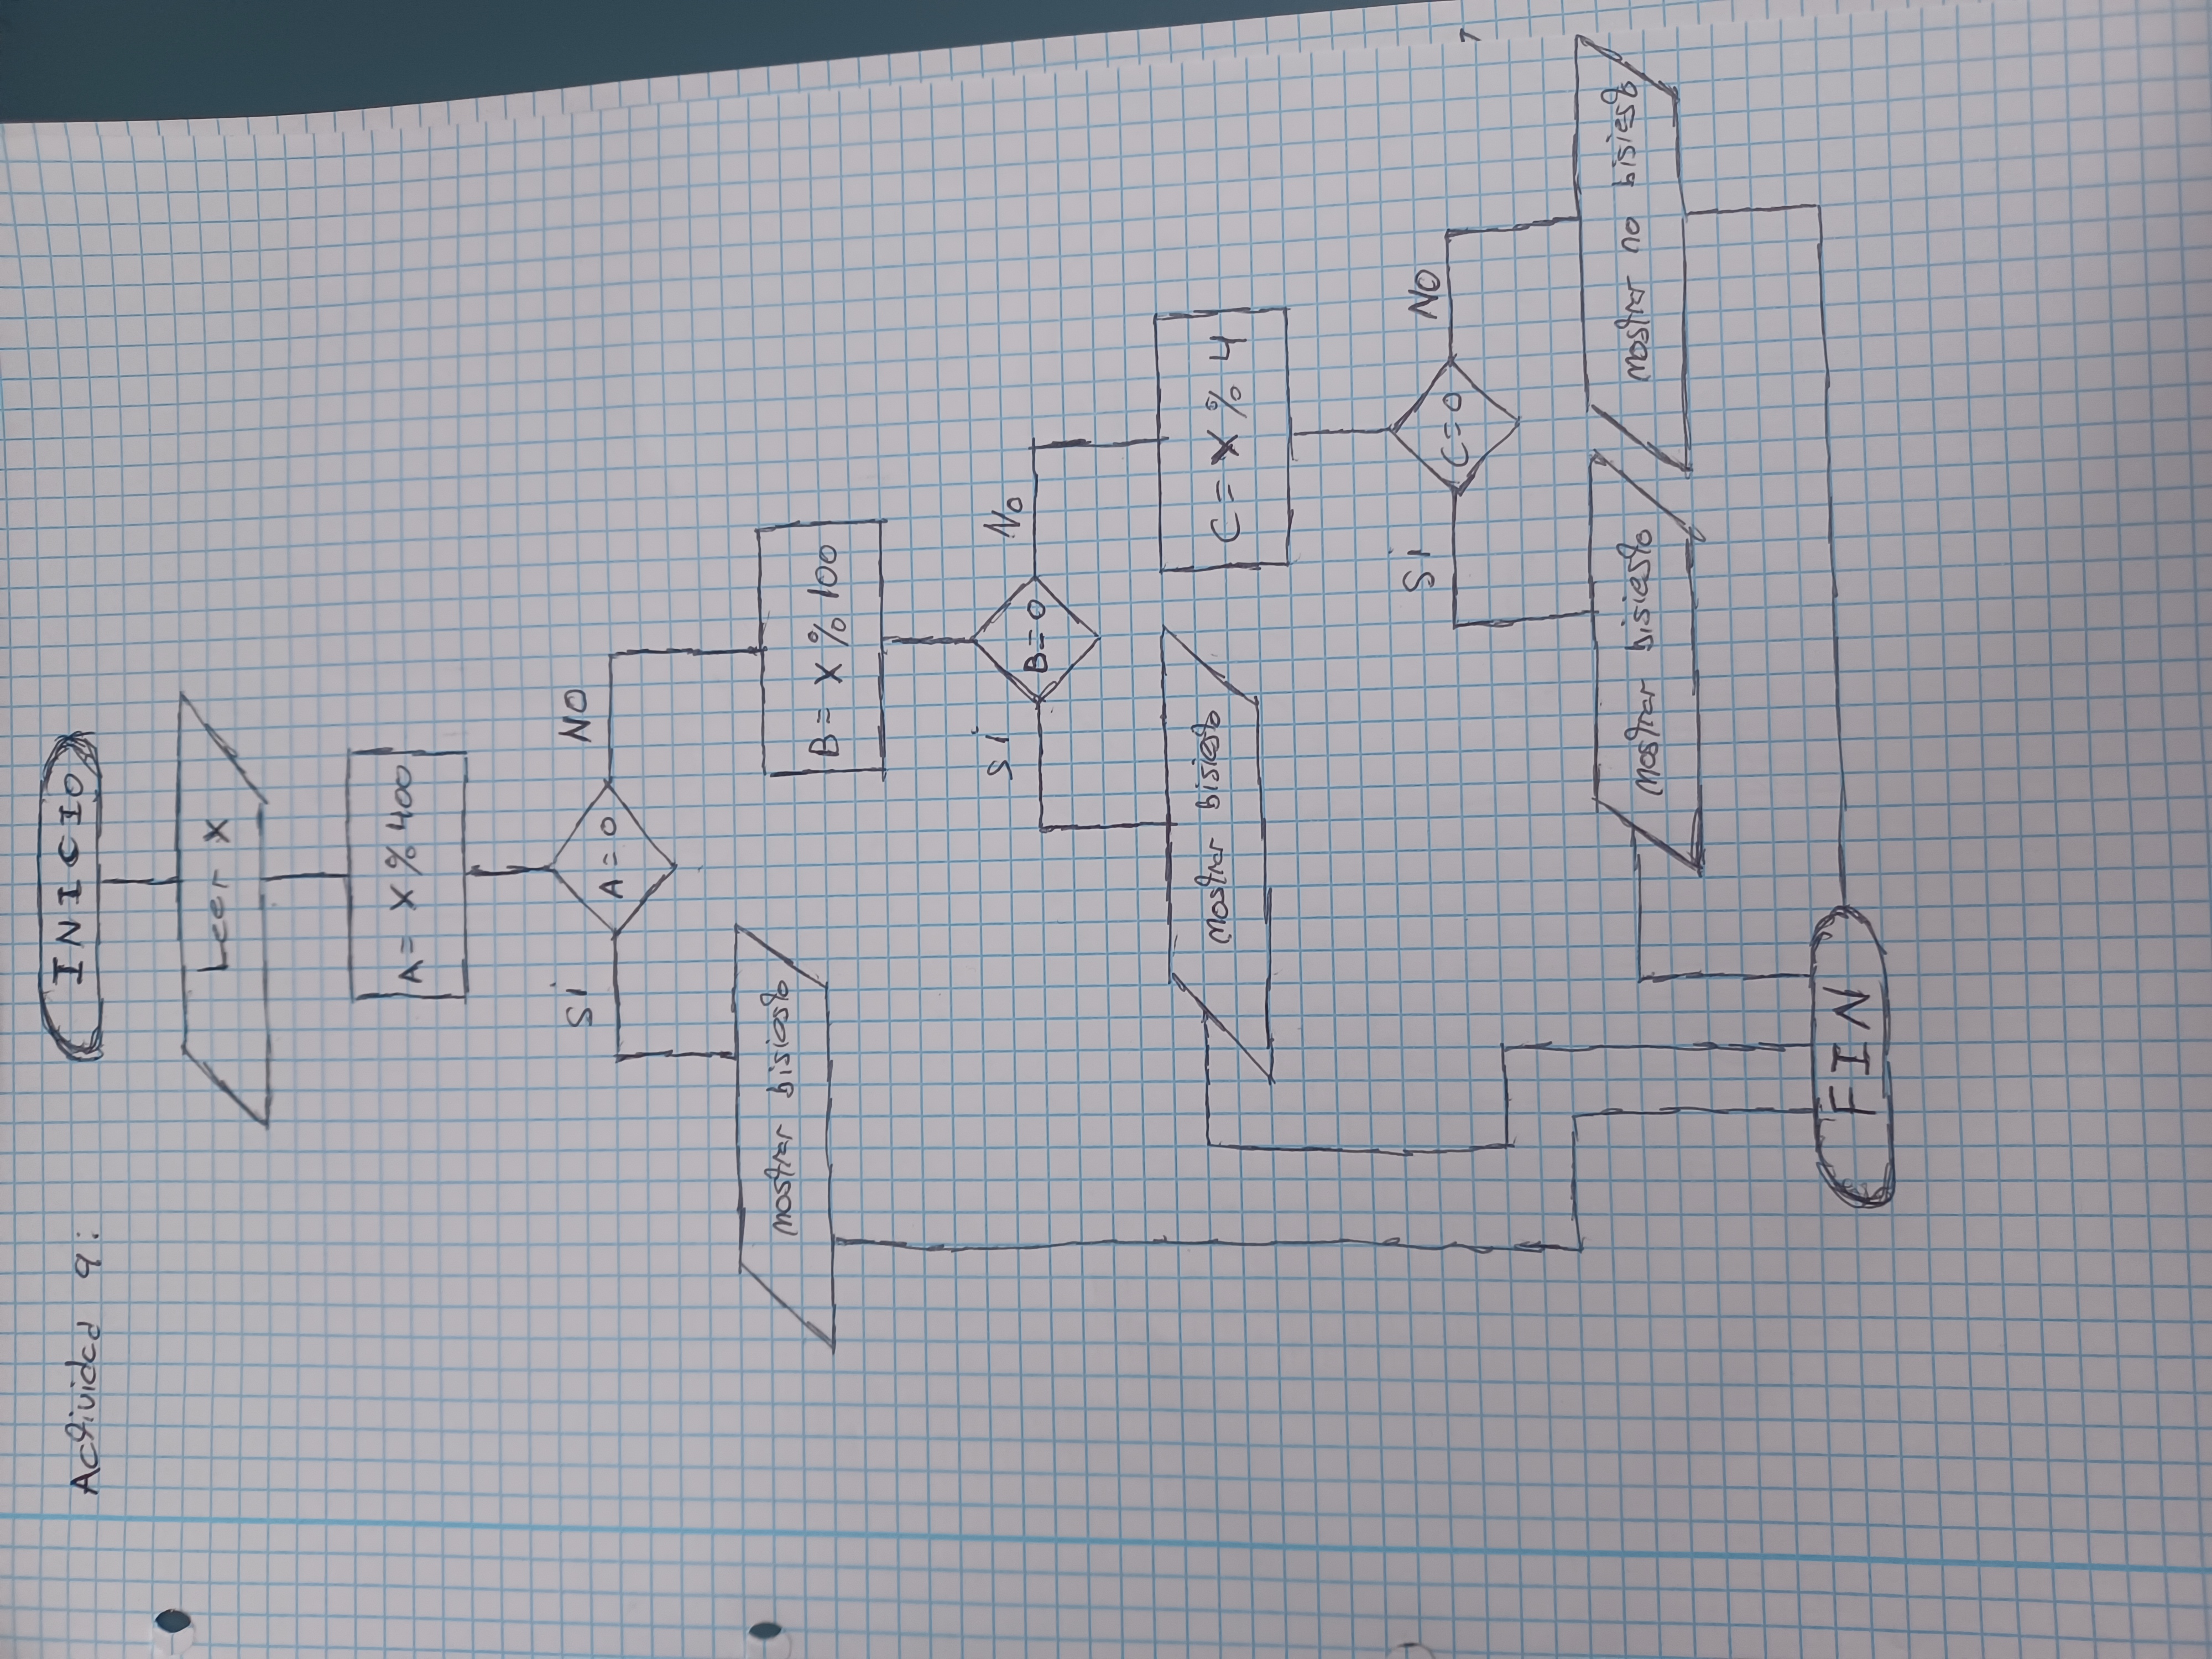 Actividad 9:
INICIO
Leer X
A = X % 400
Si
A = 0
NO
mostrar bisiesto
B = X % 100
si
B = 0
No
mostrar bisiesto
C = X % 4
Si
C = 0
NO
mostrar bisiesto
mostrar no bisiesto
FIN